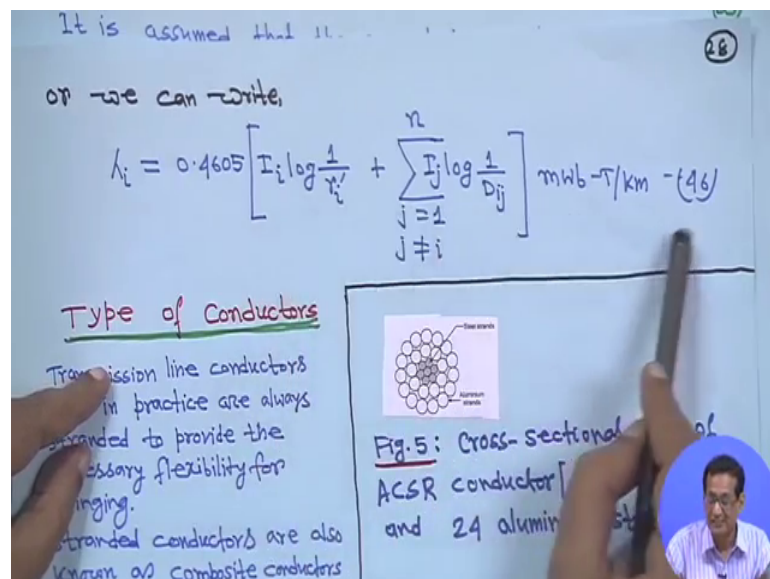 It is assumed that
28
or we can write,
λi = 0.4605 [ Ii log 1/ri' + n Σ j=1 j≠i Ij log 1/Dij ] mWb-T/km -(46)
Type of Conductors
Transmission line conductors
in practice are always
stranded to provide the
flexibility for
stranded conductors are also
known as composite conductors
Steel strands
Aluminium
strands
Fig.5: Cross-sectional of
ACSR conductor
and 24